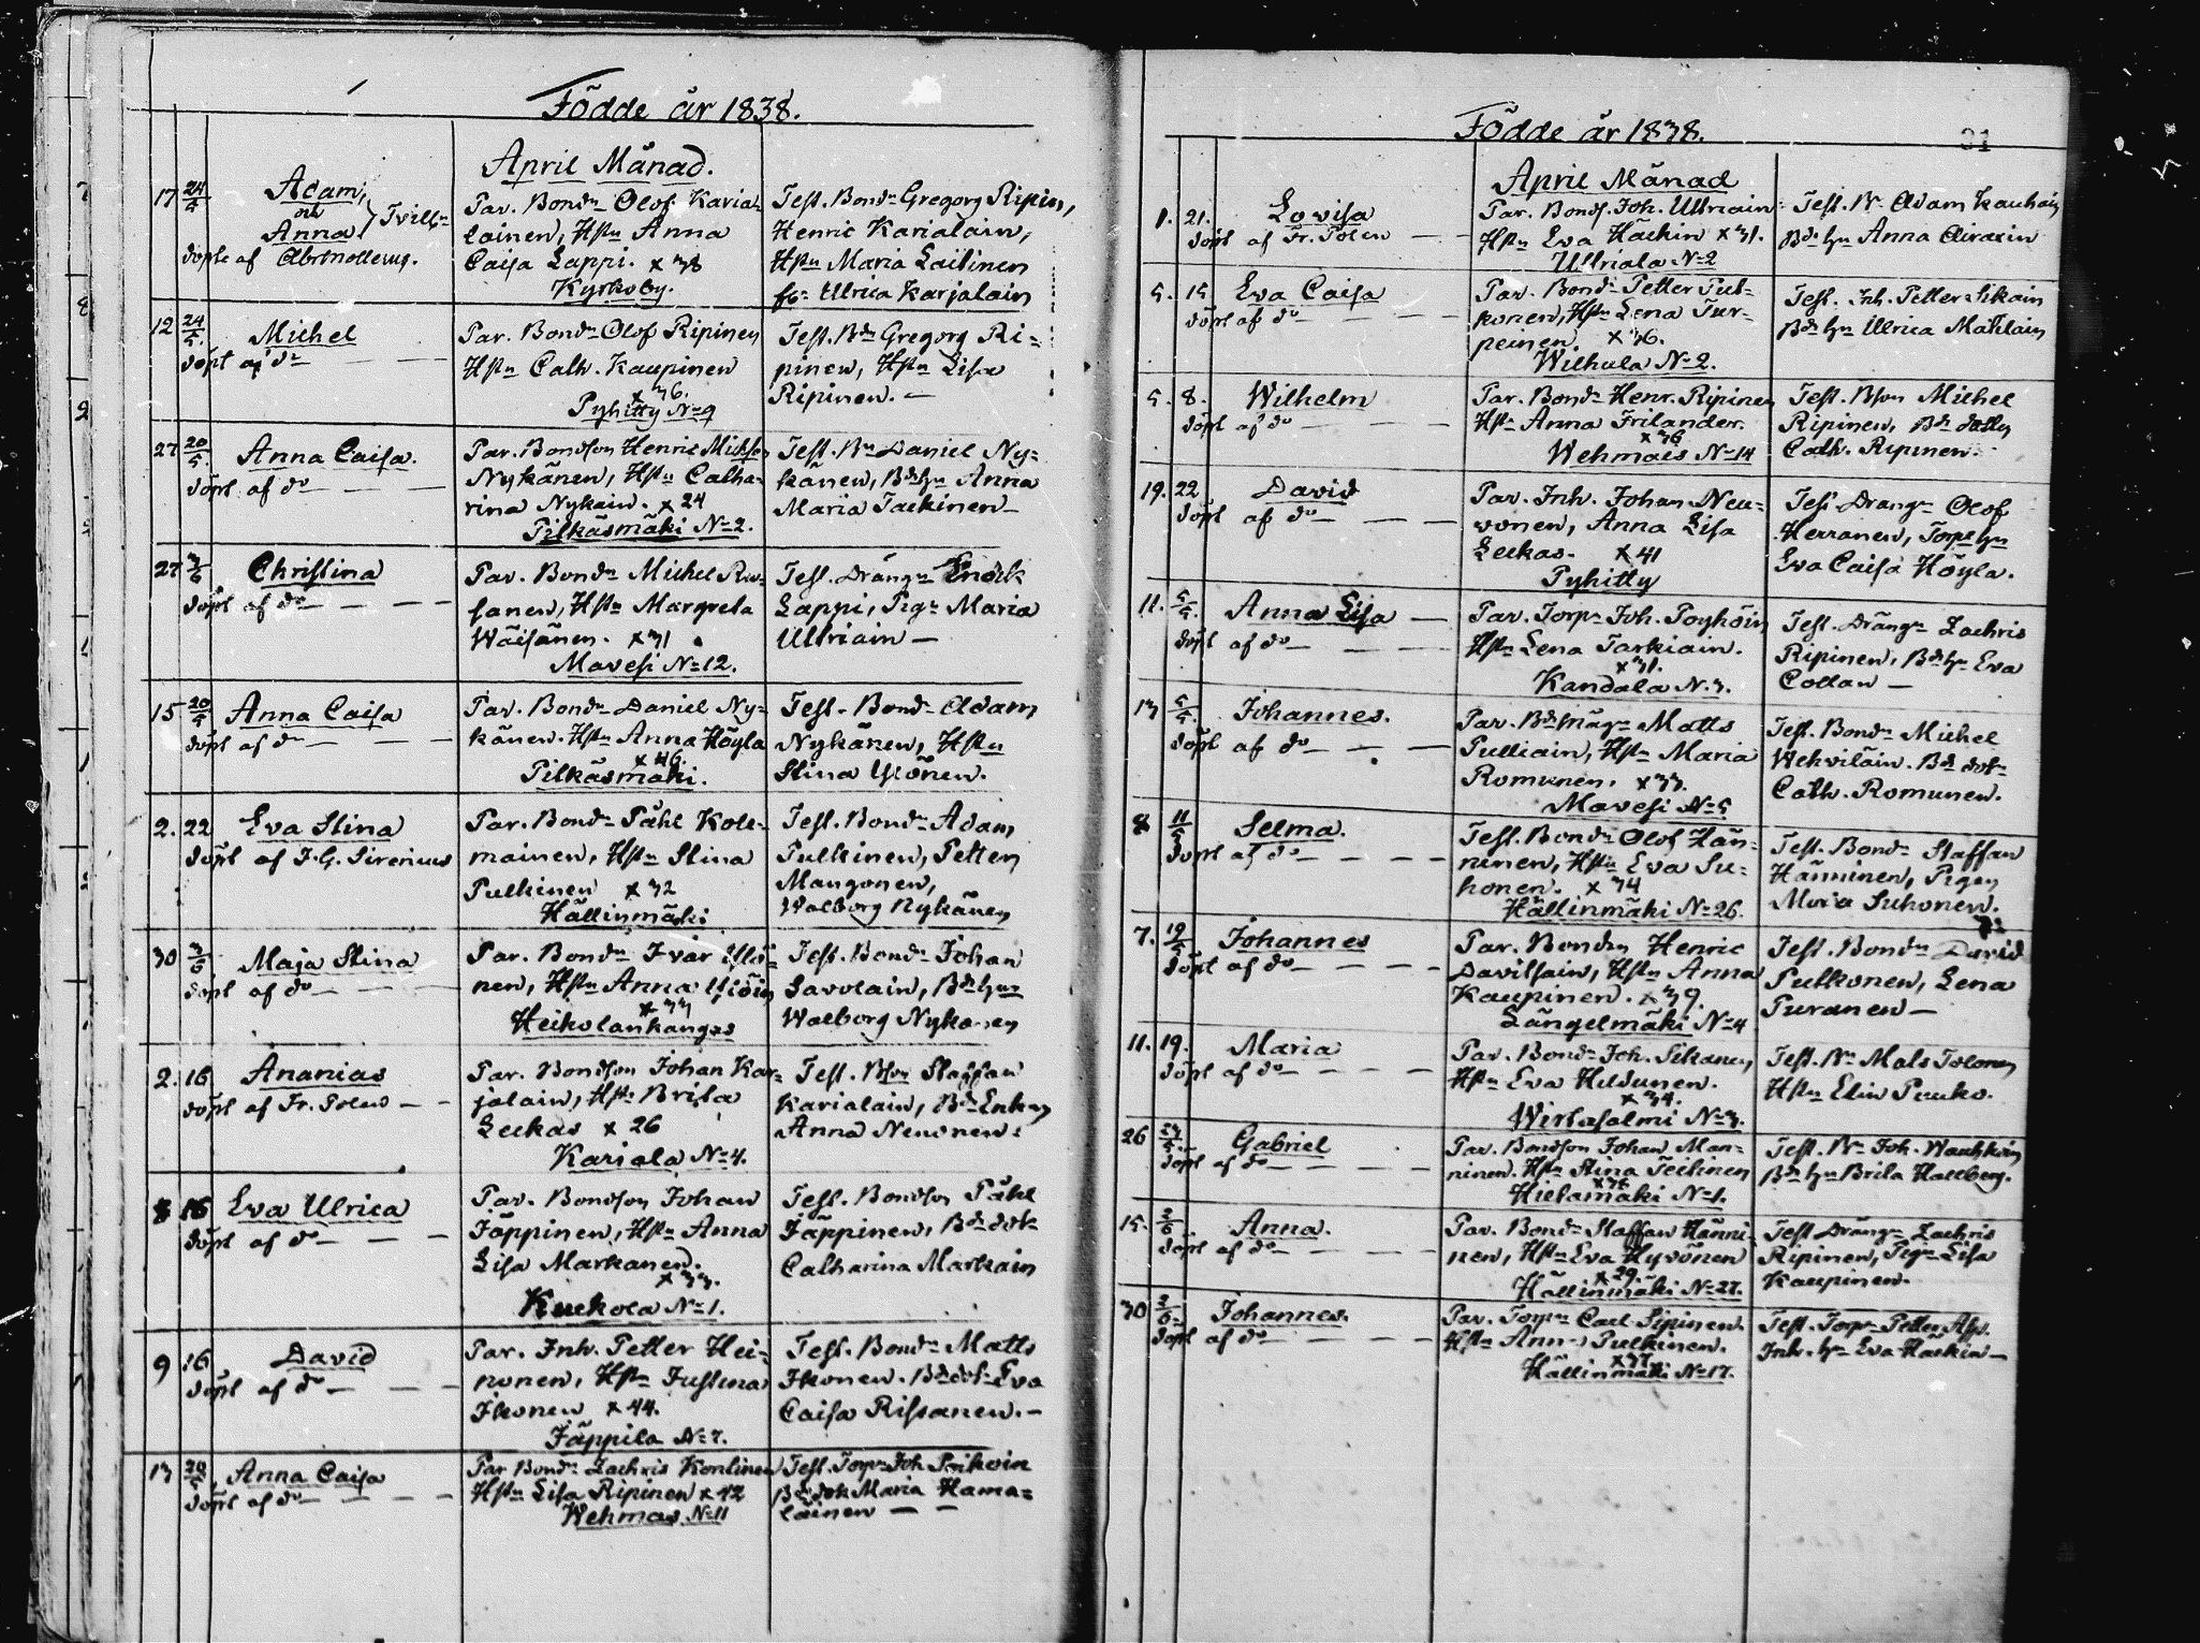 Födde år 1838.
April Månad.
17 24/5 Adam, och Anna Tvill-
döpt af Abrenollerus.
Par. Bondn Olof Karia-
lainen, Hstn Anna
Caisa Lappi. x 38
Kyrkoby.
Test. Bondn Gregorg Ripin,
Henric Karialain,
Hstn Maria Laitinen
Ulrica Karjalain
12 24/5 Michel
döpt af do
Par. Bondn Olof Ripinen
Hstn Cath. Kaupinen
x 36.
Pyhitty No 9
Test. Bdn Gregorg Ri-
pinen, Hstn Lisa
Ripinen.
27 20/5 Anna Caisa.
döpt af do
Par. Bondson Henric Michels
Nykänen, Hstn Catha-
rina Nykain. x 24
Pilkäsmäki No 2.
Test. Bn Daniel Ny-
känen, Bdhn Anna
Maria Tackinen
27 3/6 Christina
döpt af do
Par. Bondn Michel Ru-
sanen, Hstn Margreta
Wäisänen. x 31
Mavesi No 12.
Test. Drängn Enock
Lappi, Pign Maria
Ullriain
15 20/5 Anna Caisa
döpt af do
Par. Bondn Daniel Ny-
känen. Hstn Anna Höyla
x 46.
Pilkäsmäki.
Test. Bondn Adam
Nykänen, Hstn
Stina Ylönen.
2. 22 Eva Stina
döpt af J. G. Sirenius
Par. Bondn Påhl Kole-
mainen, Hstn Stina
Pulkinen x 32
Hällinmäki
Test. Bondn Adam
Pulkinen, Petter
Mangonen,
Walborg Nykänen
30 3/6 Maja Stina
döpt af do
Par. Bondn Ivar Ylö-
nen, Hstn Anna
x 33
Heikolankangas
Test. Bondn Johan
Savolain, Bdhn
Walborg Nykänen
2. 16 Ananias
döpt af Fr. Polen
Par. Bondson Johan Kar-
jalain, Hstn Brita
Leekas x 26
Kariala No 4.
Test. Bson Staffan
Karialain, Bd Enkn
Anna Neuonen
8 16 Eva Ulrica
döpt af do
Par. Bondson Johan
Jäppinen, Hstn Anna
Lisa Markanen.
x 33.
Kuckola No 1.
Test. Bondson Påhl
Jäppinen, Bd dok
Catharina Markain
9 16 David
döpt af do
Par. Inh. Petter Hei-
nonen, Hstn Justina
Ikonen x 44.
Jäppila No 7.
Test. Bondn Matts
Ikonen. Bd dok Eva
Caisa Rissanen.
13 20/5 Anna Caisa
döpt af do
Par Bondn Zachris Kontinen
Hstn Lisa Ripinen x 42
Wehmas No 11
Test. Torpn Joh
Bd dok Maria Hama-
lainen
Födde år 1838.
31
April Månad
1. 21. Lovisa
döpt af Fr. Polen
Par. Bonds. Joh. Ullriain
Hstn Eva Hackin x 31.
Ullriala No 2
Test. Bn Adam Kauhain
Bdhn Anna Airaxin
5. 15 Eva Caisa
döpt af do
Par. Bondn Petter Pul-
konen, Hstn Lena Tur-
peinen. x 36.
Wilhula No 2.
Test. Inh. Petter Sikain
Bdhn Ulrica Matilain
5. 8. Wilhelm
döpt af do
Par. Bondn Henr. Ripinen
Hstn Anna Frilander.
x 36
Wehmais No 14
Test. Bson Michel
Ripinen, Bd dotter
Cath. Ripinen.
19. 22 David
döpt af do
Par. Inh. Johan Neu-
vonen, Anna Lisa
Leekas. x 41
Pyhitty
Test Drängn Olof
Herranen, Torpehn
Eva Caisa Höyla.
11. 5/5. Anna Lisa
döpt af do
Par. Torpn Joh. Poyhöin
Hstn Lena Tarkiain.
x 31.
Kandala N. 3.
Test. Drängn Zachris
Ripinen, Bdhn Eva
Collan
13 5/5. Johannes.
döpt af do
Par. Bdmågn Matts
Pulliain, Hstn Maria
Romunen. x 33.
Mavesi No 5
Test. Bondn Michel
Wehviläin. Bd dotr
Cath. Romunen.
8 11/5 Selma.
döpt af do
Test. Bondn Olof Hän-
ninen, Hstn Eva Su-
honen. x 34
Hällinmäki No 26.
Test. Bondn Staffan
Hänninen, Pigan
Maria Suhonen.
7. 19/5 Johannes
döpt af do
Par. Bonden Henric
Davitsain, Hstn Anna
Kaupinen. x 39.
Längelmäki No 4
Test. Bondn David
Pulkonen, Lena
Turanen
11. 19. Maria
döpt af do
Par. Bondn Joh. Sikanen
Hstn Eva Hildunen.
x 34.
Wirtasalmi No 3.
Test. Bn Mats Tolonen
Hstn Elin Puuko.
26 27/5 Gabriel
döpt af do
Par. Bondson Johan Man-
ninen. Hstn Stina Teitinen
Hietamäki No 1.
Test. Bn Joh. Wauhkoin
Bdhn Brita Hallberg.
15. 3/6 Anna.
döpt af do
Par. Bondn Staffan Hänni-
nen, Hstn Eva Hyvönen
x 29.
Hällinmäki No 27.
Test Drängn Zachris
Ripinen, Pign Lisa
Kaupinen.
30 3/6 Johannes.
döpt af do
Par. Torpn Carl Sipinen.
Hstn Anna Pulkinen.
x 37.
Hällinmäki No 17.
Test. Torpr Petter Asp.
Inh. hn Eva Hackin